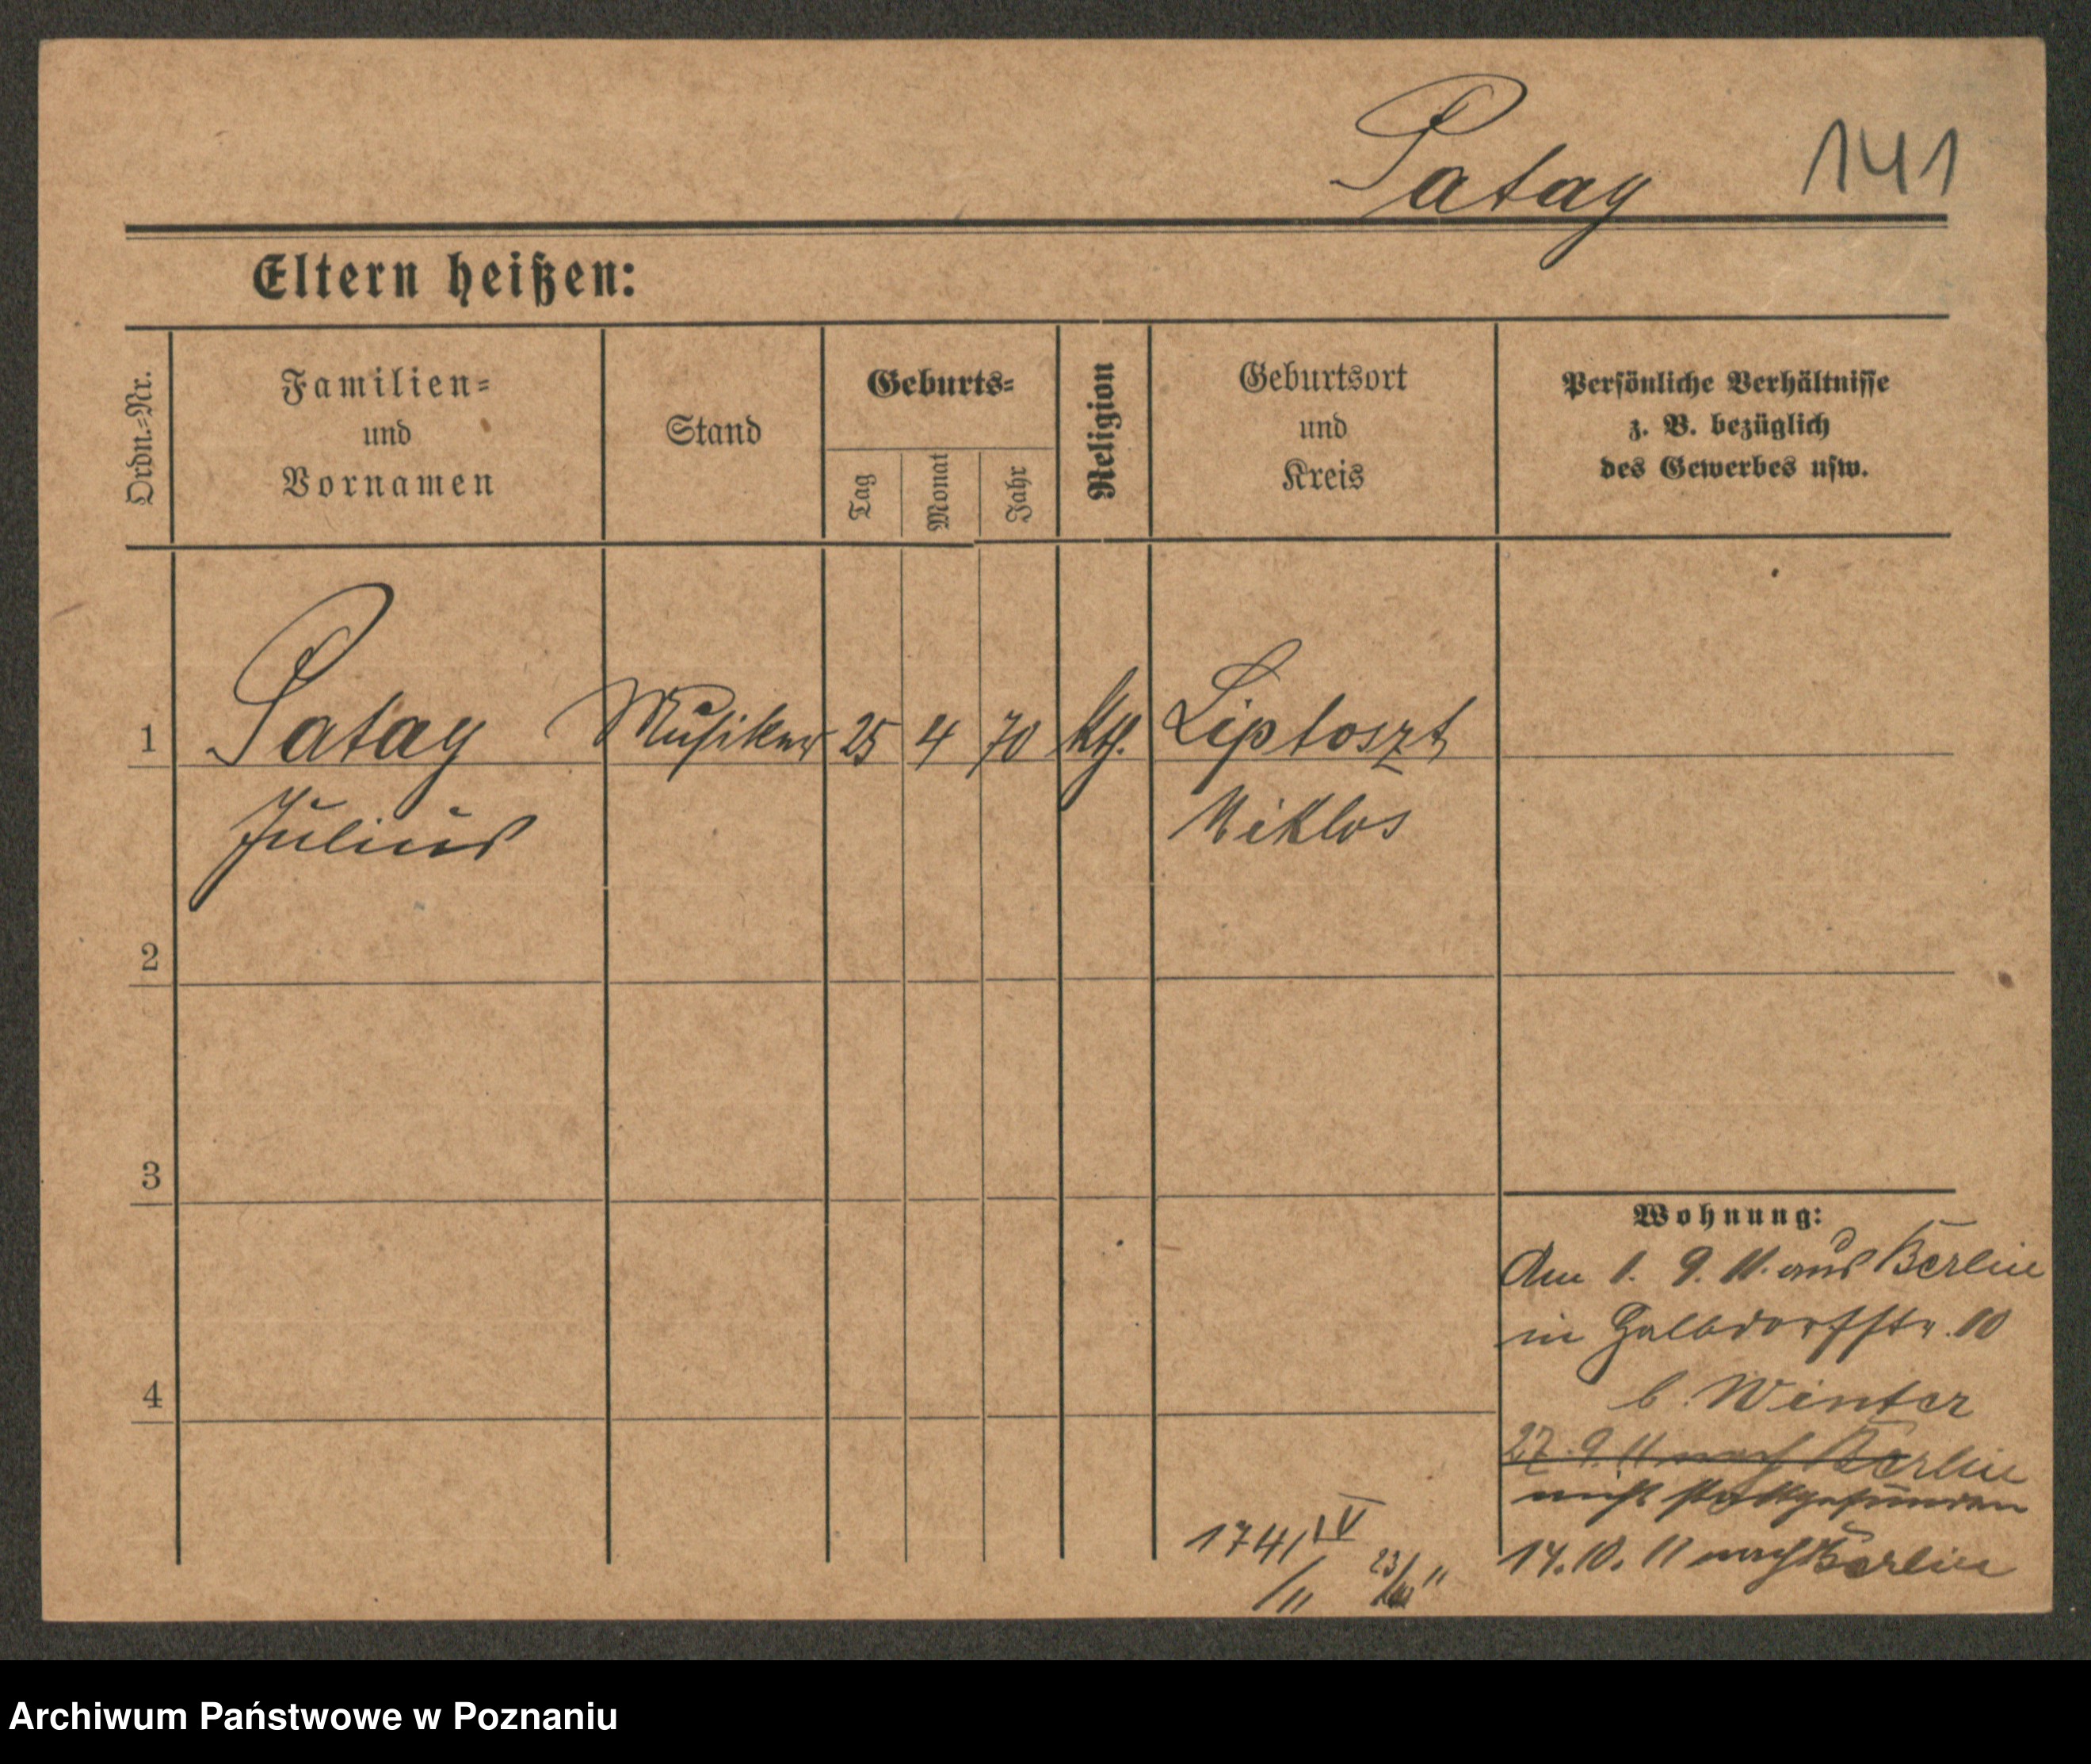 Patay 141
Eltern heißen:
Ordn.-Nr.
Familien-
und
Vornamen
Stand
Geburts-
Tag
Monat
Jahr
Religion
Geburtsort
und
Kreis
Persönliche Verhältnisse
z. B. bezüglich
des Gewerbes usw.
1 Patay Musiker 25 4 70 kth. Liptoszt
Julius Miklos
2
3
4
Wohnung:
Am 1. 9. 11. aus Berlin
in Halbdorfstr. 10
b. Winter
27. 9. 11 nach Berlin
nicht stattgefunden
14. 10. 11 nach Berlin
174/IV
/11 23/ 11
Archiwum Państwowe w Poznaniu